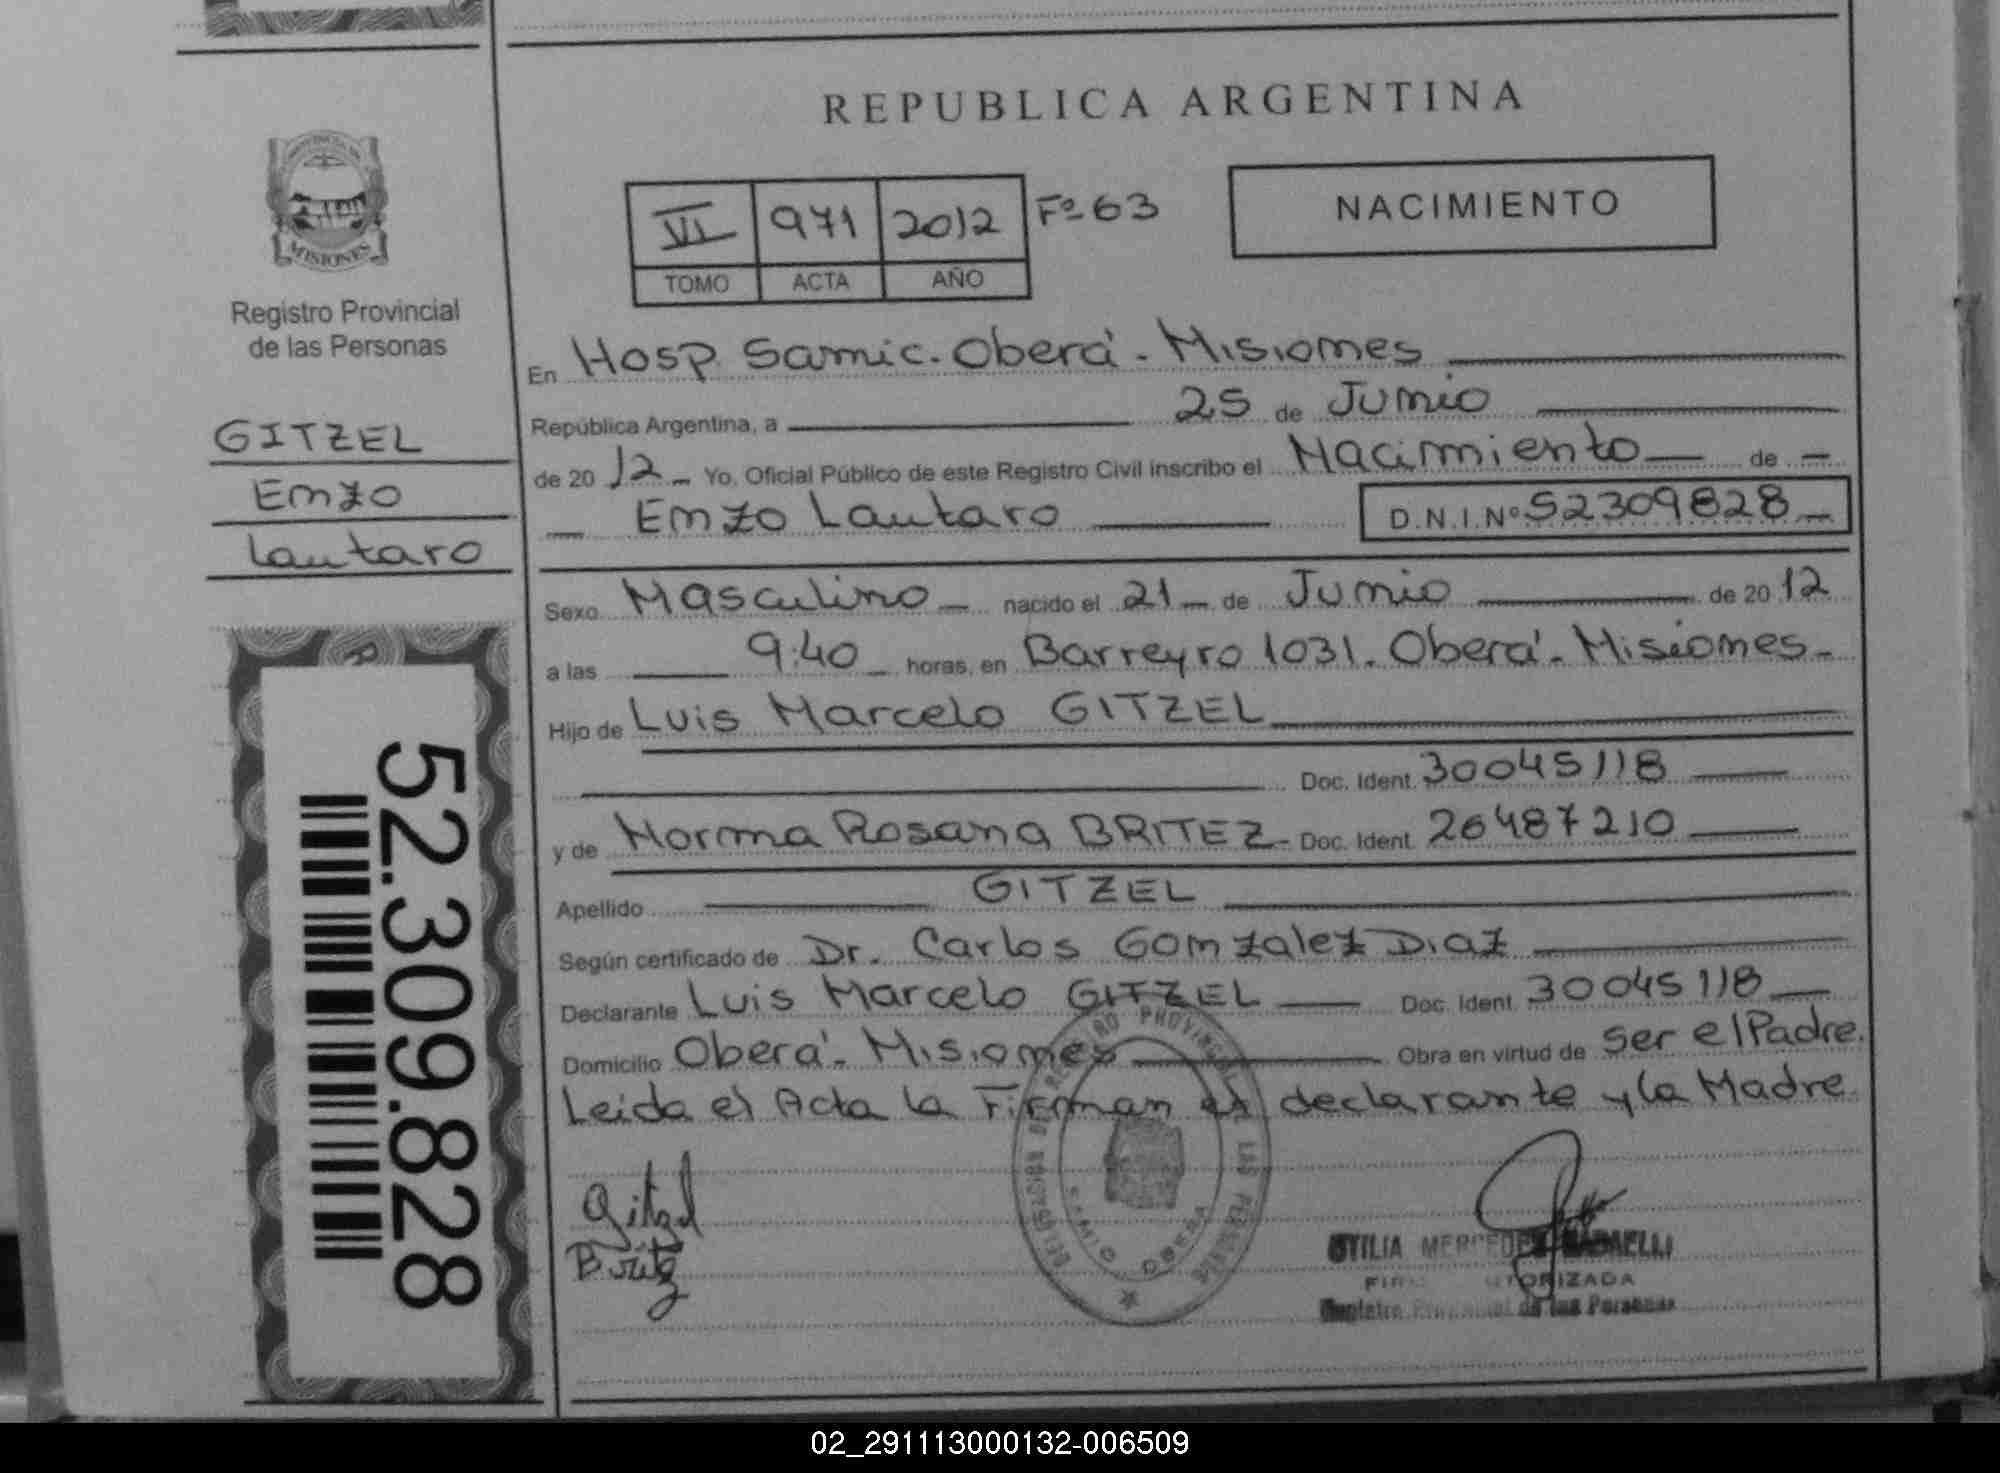 REPUBLICA ARGENTINA
PROVINCIA DE
MISIONES
Registro Provincial
de las Personas
GITZEL
Enzo
Lautaro
52.309.828
VI 971 2012 Fº 63
TOMO ACTA AÑO
NACIMIENTO
En Hosp Samic. Oberá - Misiones
República Argentina, a 25 de Junio
de 20 12 Yo, Oficial Público de este Registro Civil inscribo el Nacimiento de
Enzo Lautaro D.N.I. Nº 52309828
Sexo Masculino nacido el 21 de Junio de 20 12
a las 9:40 horas, en Barreyro 1031. Oberá - Misiones
Hijo de Luis Marcelo GITZEL
Doc. Ident. 30045118
y de Norma Rosana BRITEZ Doc. Ident. 26487210
Apellido GITZEL
Según certificado de Dr. Carlos Gonzalez Diaz
Declarante Luis Marcelo GITZEL Doc. Ident. 30045118
Domicilio Oberá - Misiones Obra en virtud de ser el Padre.
Leida el Acta la Firman el declarante y la Madre.
Gitzel
Britez
MERCEDES
AUTORIZADA
Registro Provincial de las Personas
02_291113000132-006509